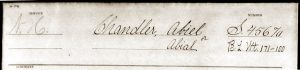 SERVICE NUMBER
Chandler, Abiel S.
Abial B.L.Wt. 171-100